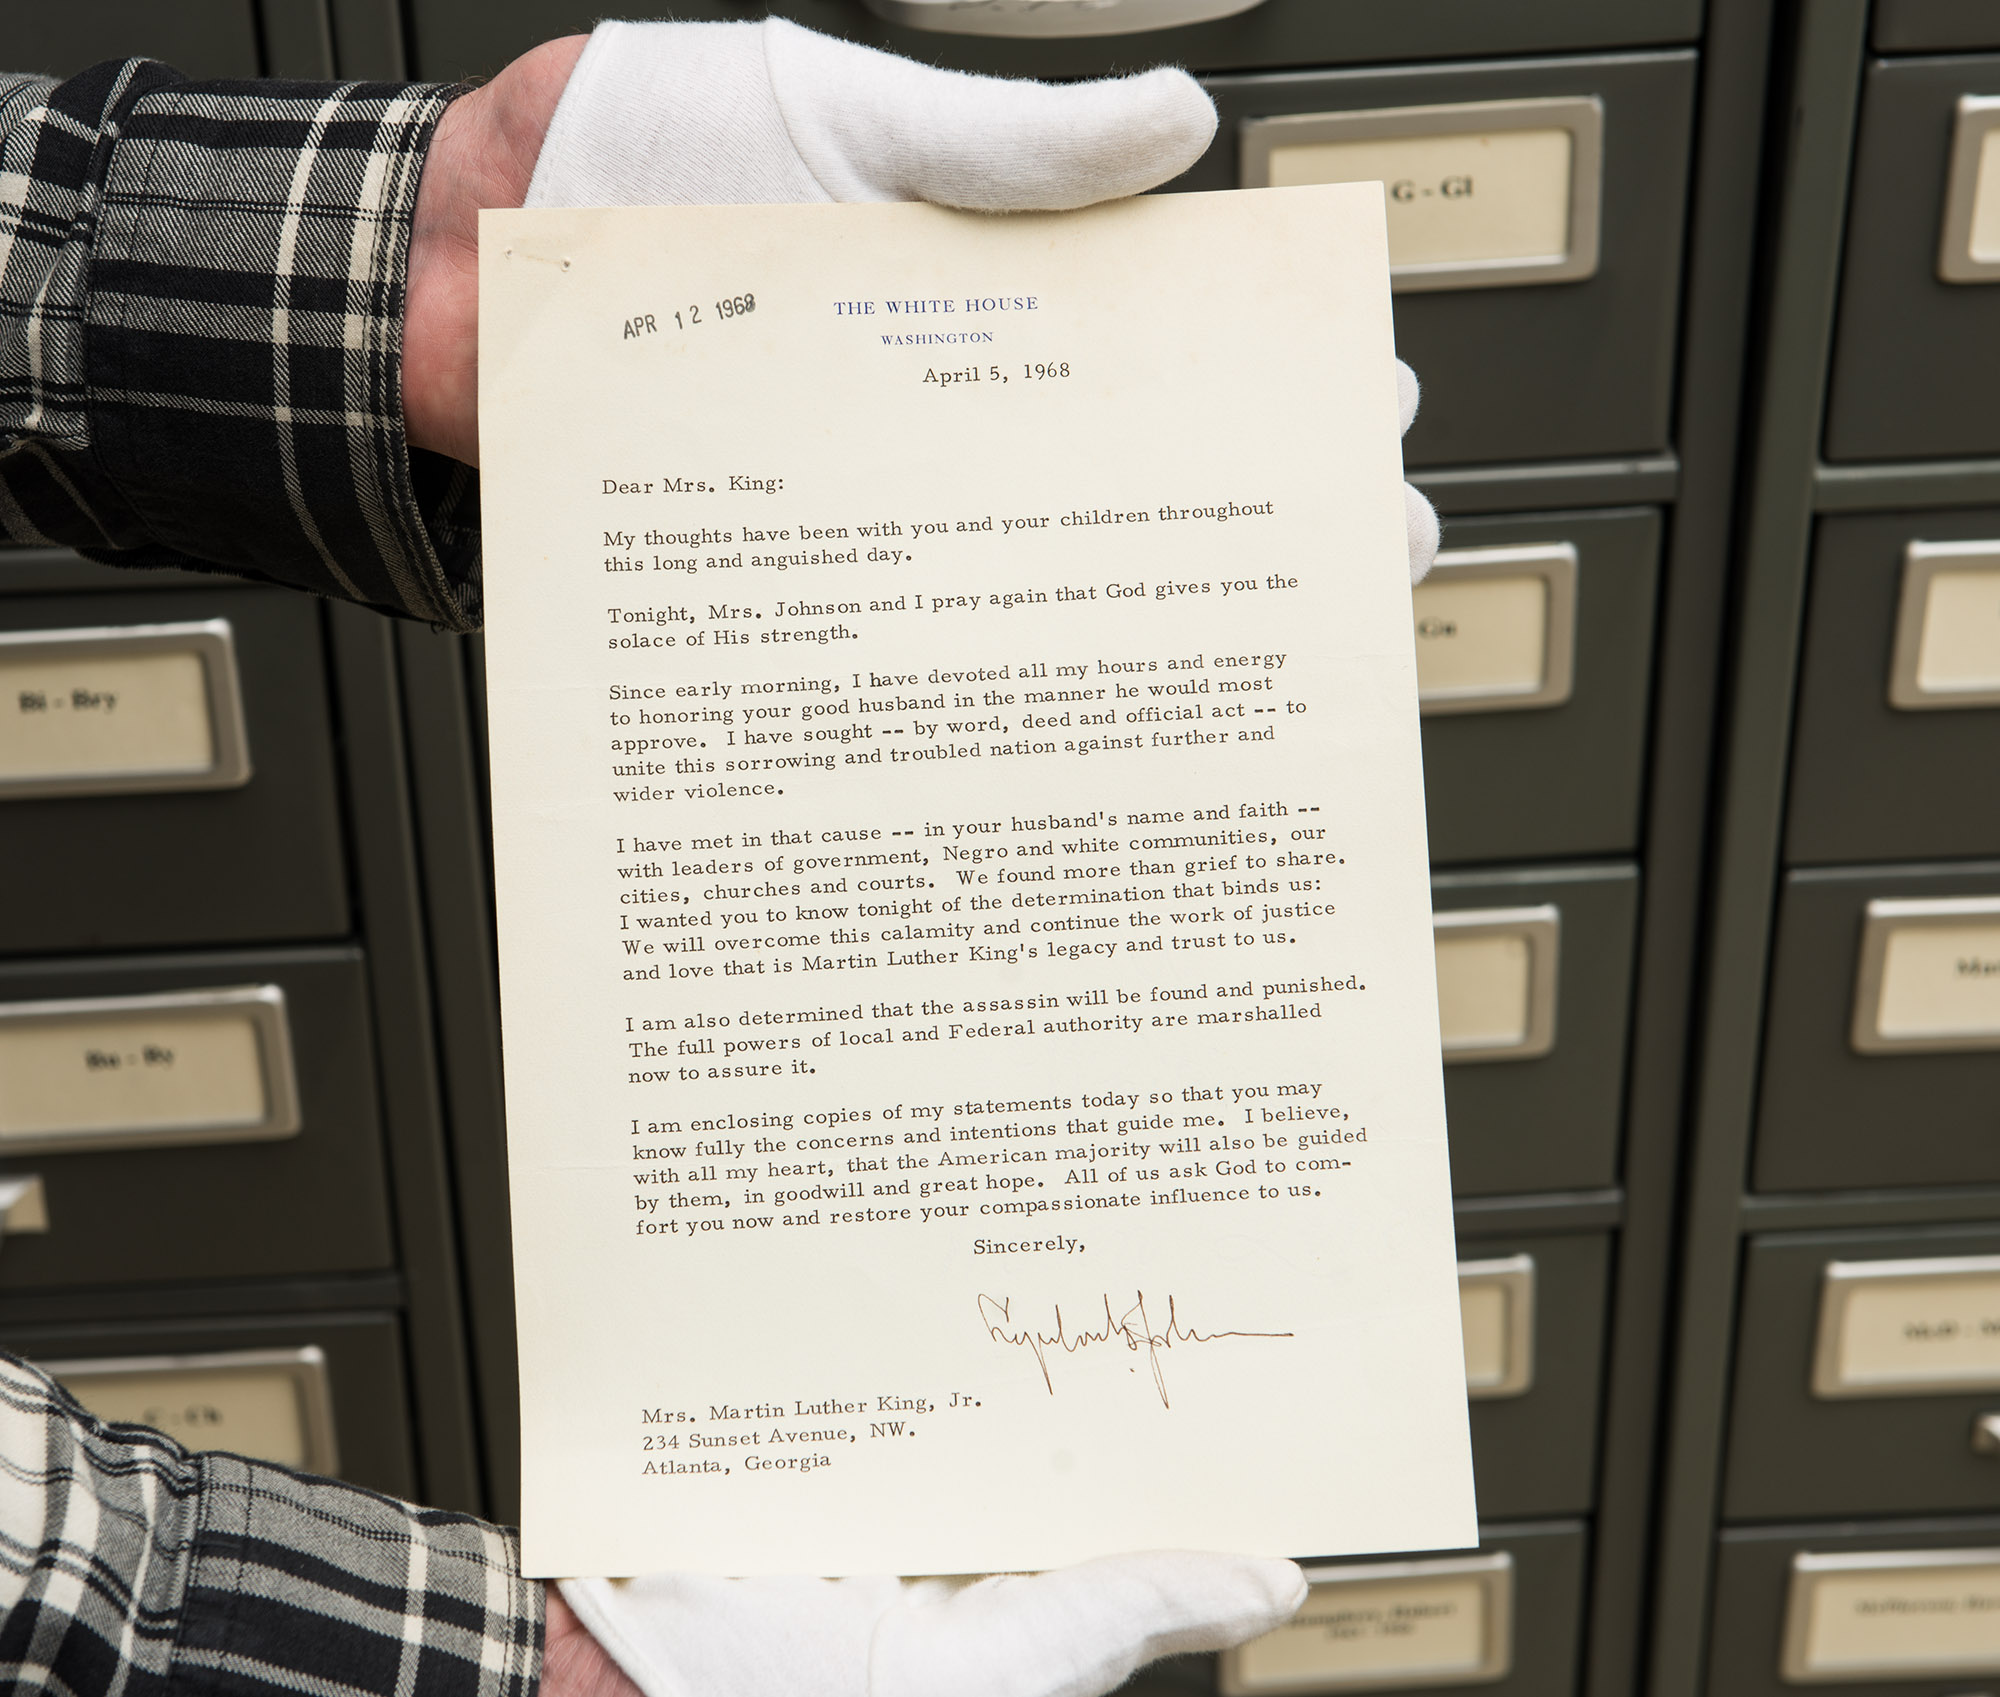 G - Gl
APR 12 1968
THE WHITE HOUSE
WASHINGTON
April 5, 1968
Dear Mrs. King:
My thoughts have been with you and your children throughout
this long and anguished day.
Tonight, Mrs. Johnson and I pray again that God gives you the
solace of His strength.
Since early morning, I have devoted all my hours and energy
to honoring your good husband in the manner he would most
approve. I have sought -- by word, deed and official act -- to
unite this sorrowing and troubled nation against further and
wider violence.
I have met in that cause -- in your husband's name and faith --
with leaders of government, Negro and white communities, our
cities, churches and courts. We found more than grief to share.
I wanted you to know tonight of the determination that binds us:
We will overcome this calamity and continue the work of justice
and love that is Martin Luther King's legacy and trust to us.
I am also determined that the assassin will be found and punished.
The full powers of local and Federal authority are marshalled
now to assure it.
I am enclosing copies of my statements today so that you may
know fully the concerns and intentions that guide me. I believe,
with all my heart, that the American majority will also be guided
by them, in goodwill and great hope. All of us ask God to com-
fort you now and restore your compassionate influence to us.
Sincerely,
Mrs. Martin Luther King, Jr.
234 Sunset Avenue, NW.
Atlanta, Georgia
Bi - Bry
Bu - By
C - Ch
Gu